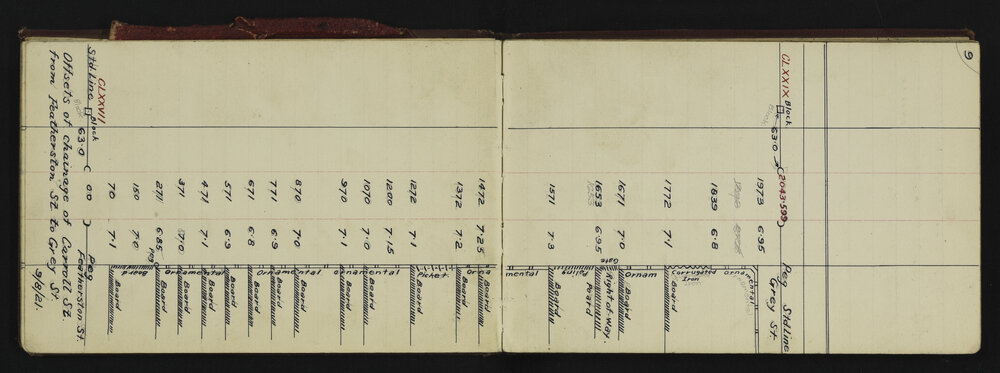 9
CLXXIX Block
63.0
2043.599
Peg Std Line
Grey St.
1973 6.95
1839 6.8
1772 7.1
1671 7.0
1653 6.95
1571 7.3
1472 7.25
1372 7.2
1272 7.1
1200 7.15
1070 7.0
970 7.1
870 7.0
771 6.9
671 6.8
571 6.9
471 7.1
371 7.0
271 6.85
150 7.0
70 7.1
Orna
Corrugated
Iron
Ornam
mental
Gate
Right-of-way.
Board
Board
Board
Board
Paling
Orna
Board
Board
Picket
Board
ornamental
Board
Board
Ornamental
Board
Board
Board
Ornamental
Board
Board
Board
Peg
Board
Board
CLXXVII
Std Line Block
63.0
0.0
Peg
Featherston St.
Offsets of chainage of Carroll St.
from Featherston St. to Grey St.
9/8/21.